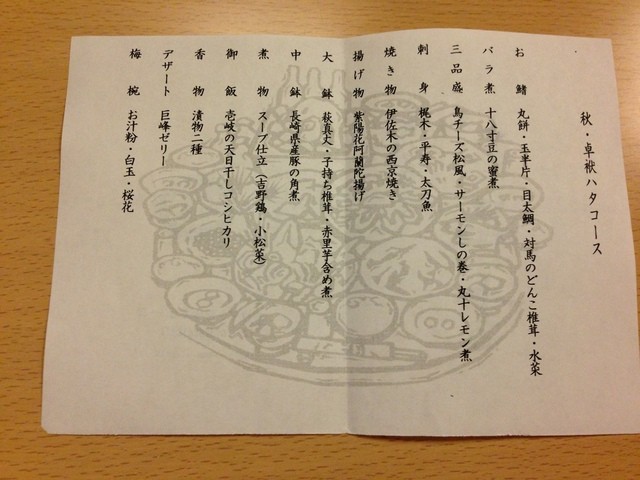 秋・卓袱ハタコース
お鰭 丸餅・玉半片・目太鯛・対馬のどんこ椎茸・水菜
バラ煮 十八寸豆の蜜煮
三品盛 鳥チーズ松風・サーモンしの巻・丸十レモン煮
刺身 梶木・平寿・太刀魚
焼き物 伊佐木の西京焼き
揚げ物 紫陽花阿蘭陀揚げ
大鉢 萩真丈・子持ち椎茸・赤里芋含め煮
中鉢 長崎県産豚の角煮
煮物 スープ仕立(吉野鶏・小松菜)
御飯 壱岐の天日干しコシヒカリ
香物 漬物二種
デザート 巨峰ゼリー
梅椀 お汁粉・白玉・桜花